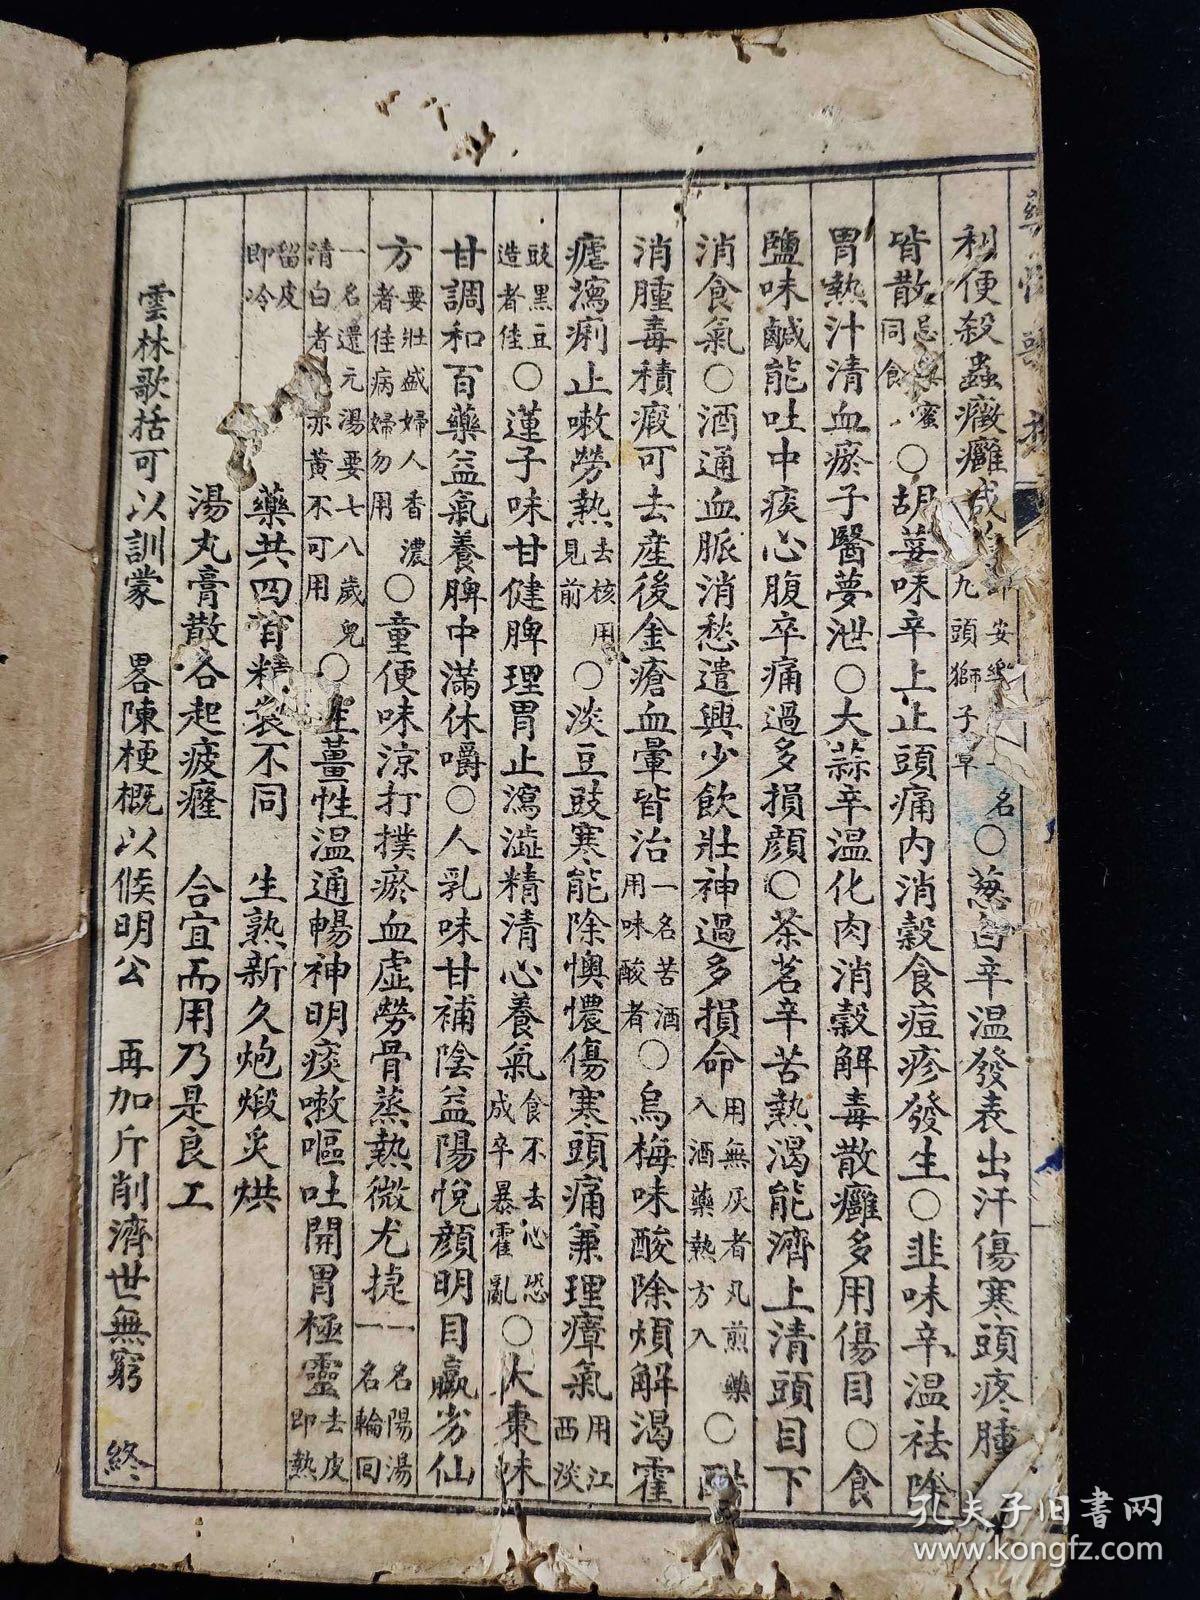 藥性歌
利便殺蟲癥癰 九頭獅子草 安 名○葱白辛溫發表出汗傷寒頭疼腫
皆散忌與蜜同食○胡荽味辛上止頭痛內消穀食痘疹發生○韭味辛溫祛除
胃熱汁清血瘀子醫夢泄○大蒜辛溫化肉消穀解毒散癰多用傷目○食
鹽味鹹能吐中痰心腹卒痛過多損顏○茶茗辛苦熱渴能濟上清頭目下
消食氣○酒通血脈消愁遣興少飲壯神過多損命用無灰者凡煎藥入酒藥熱方入○醋
消腫毒積瘕可去產後金瘡血暈皆治一名苦酒用味酸者○烏梅味酸除煩解渴霍
瘧瀉痢止嗽勞熱去核用見前○淡豆豉寒能除懊憹傷寒頭痛兼理瘴氣用江西淡
豉黑豆造者佳○蓮子味甘健脾理胃止瀉澁精清心養氣食不去心恐成卒暴霍亂○大棗味
甘調和百藥益氣養脾中滿休嚼○人乳味甘補陰益陽悅顏明目羸劣仙
方要壯盛婦人香濃者佳病婦勿用○童便味涼打撲瘀血虛勞骨蒸熱微尤捷一名陽湯一名輪回
一名還元湯要七八歲兒清白者赤黃不可用○生薑性溫通暢神明痰嗽嘔吐開胃極靈去皮即熱
留皮即冷
藥共四百精製不同 生熟新久炮煅炙烘
湯丸膏散各起疲癃 合宜而用乃是良工
雲林歌括可以訓蒙 畧陳梗概以俟明公 再加斤削濟世無窮 終
孔夫子旧书网
www.kongfz.com